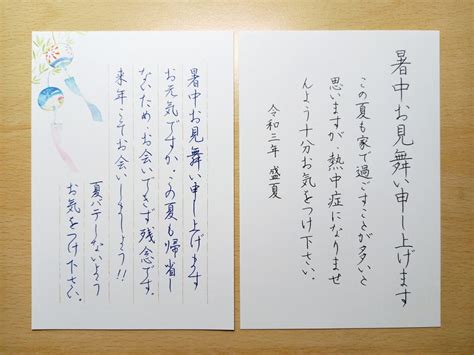 暑中お見舞い申し上げます
この夏も家で過ごすことが多いと
思いますが、熱中症になりませ
んよう十分お気をつけ下さい。
令和三年 盛夏
暑中お見舞い申し上げます
お元気ですか。この夏も帰省し
ないため、お会いできず残念です。
来年こそお会いしましょう!!
夏バテしないよう
お気をつけ下さい。